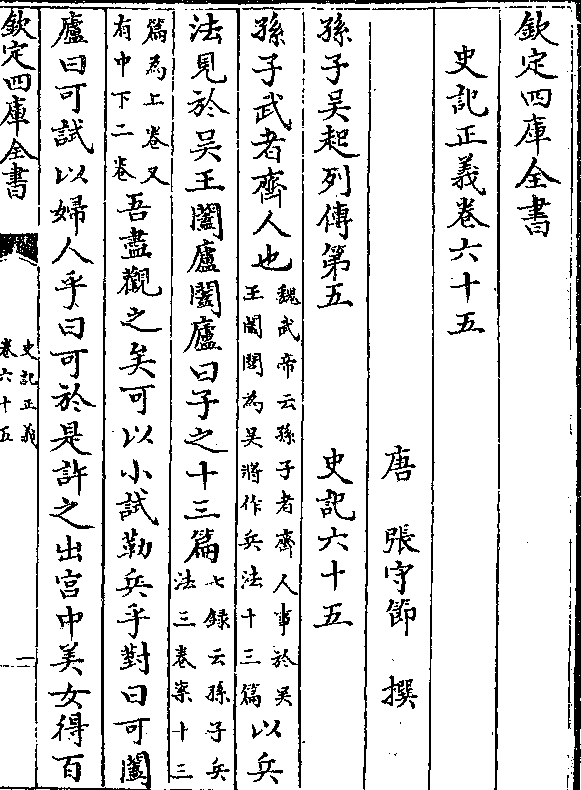 欽定四庫全書
史記正義卷六十五
唐 張守節 撰
孫子吳起列傳第五 史記六十五
孫子武者齊人也魏武帝云孫子者齊人事於吳王闔閭為吳將作兵法十三篇以兵
法見於吳王闔廬闔廬曰子之十三篇七録云孫子兵法三卷案十三
篇為上卷又有中下二卷吾盡觀之矣可以小試勒兵乎對曰可闔
廬曰可試以婦人乎曰可於是許之出宫中美女得百
欽定四庫全書
史記正義
卷六十五
一